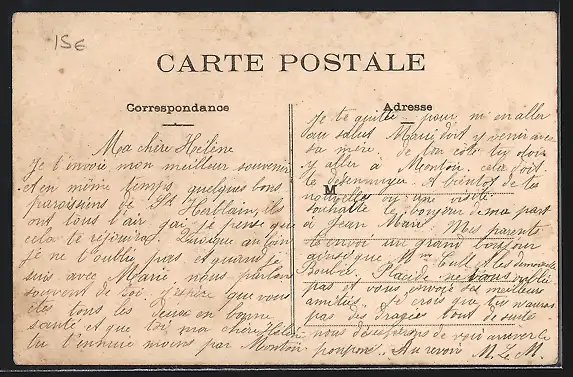 15€
CARTE POSTALE
Correspondance
Ma chère Hélène
Je t'envoie mon meilleur souvenir
et en même temps quelques bons
paroissiens de St Herblain, ils
ont tous l'air gai je pense que
cela te réjouira. Quoique au loin
je ne t'oublie pas et quand je
suis avec Marie nous parlons
souvent de toi. J'espère que vous
êtes tous les deux en bonne
santé et que toi, ma chère Hélène
tu t'ennuie moins par Montoir
Adresse
Je te quitte pour m'en aller
au salut Marie doit y venir avec
sa mère. de ton côté tu dois
y aller à Montoir cela doit
te désennuyer. A bientôt de tes
M
nouvelles ou une visite
souhaite le bonjour de ma part
à Jean Marie. Mes parents
t'envoie un grand bonjour
ainsi que Mme et les demoiselles
Placide ne vous oublie
pas et vous envoie ses meilleurs
amitiés. Je crois que tu n'auras
pas des dragées tout de suite
nous désespérons de voir arriver le
poupon. Au revoir M. Le M.